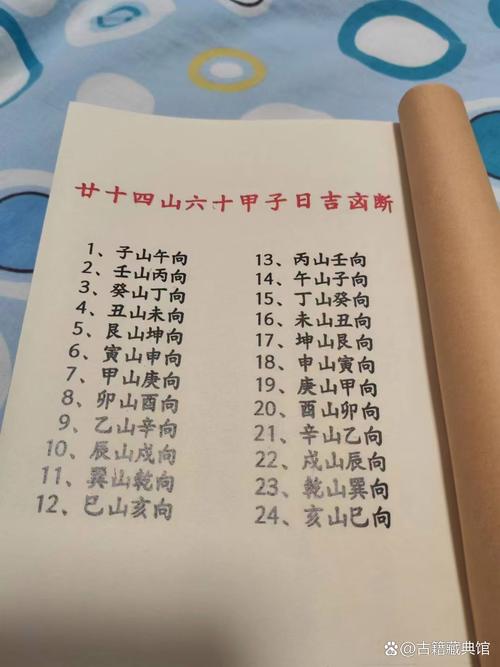 廿十四山六十甲子日吉凶断
1、子山午向
2、壬山丙向
3、癸山丁向
4、丑山未向
5、艮山坤向
6、寅山申向
7、甲山庚向
8、卯山酉向
9、乙山辛向
10、辰山戌向
11、巽山乾向
12、巳山亥向
13、丙山壬向
14、午山子向
15、丁山癸向
16、未山丑向
17、坤山艮向
18、申山寅向
19、庚山甲向
20、酉山卯向
21、辛山乙向
22、戌山辰向
23、乾山巽向
24、亥山巳向
古籍藏典馆